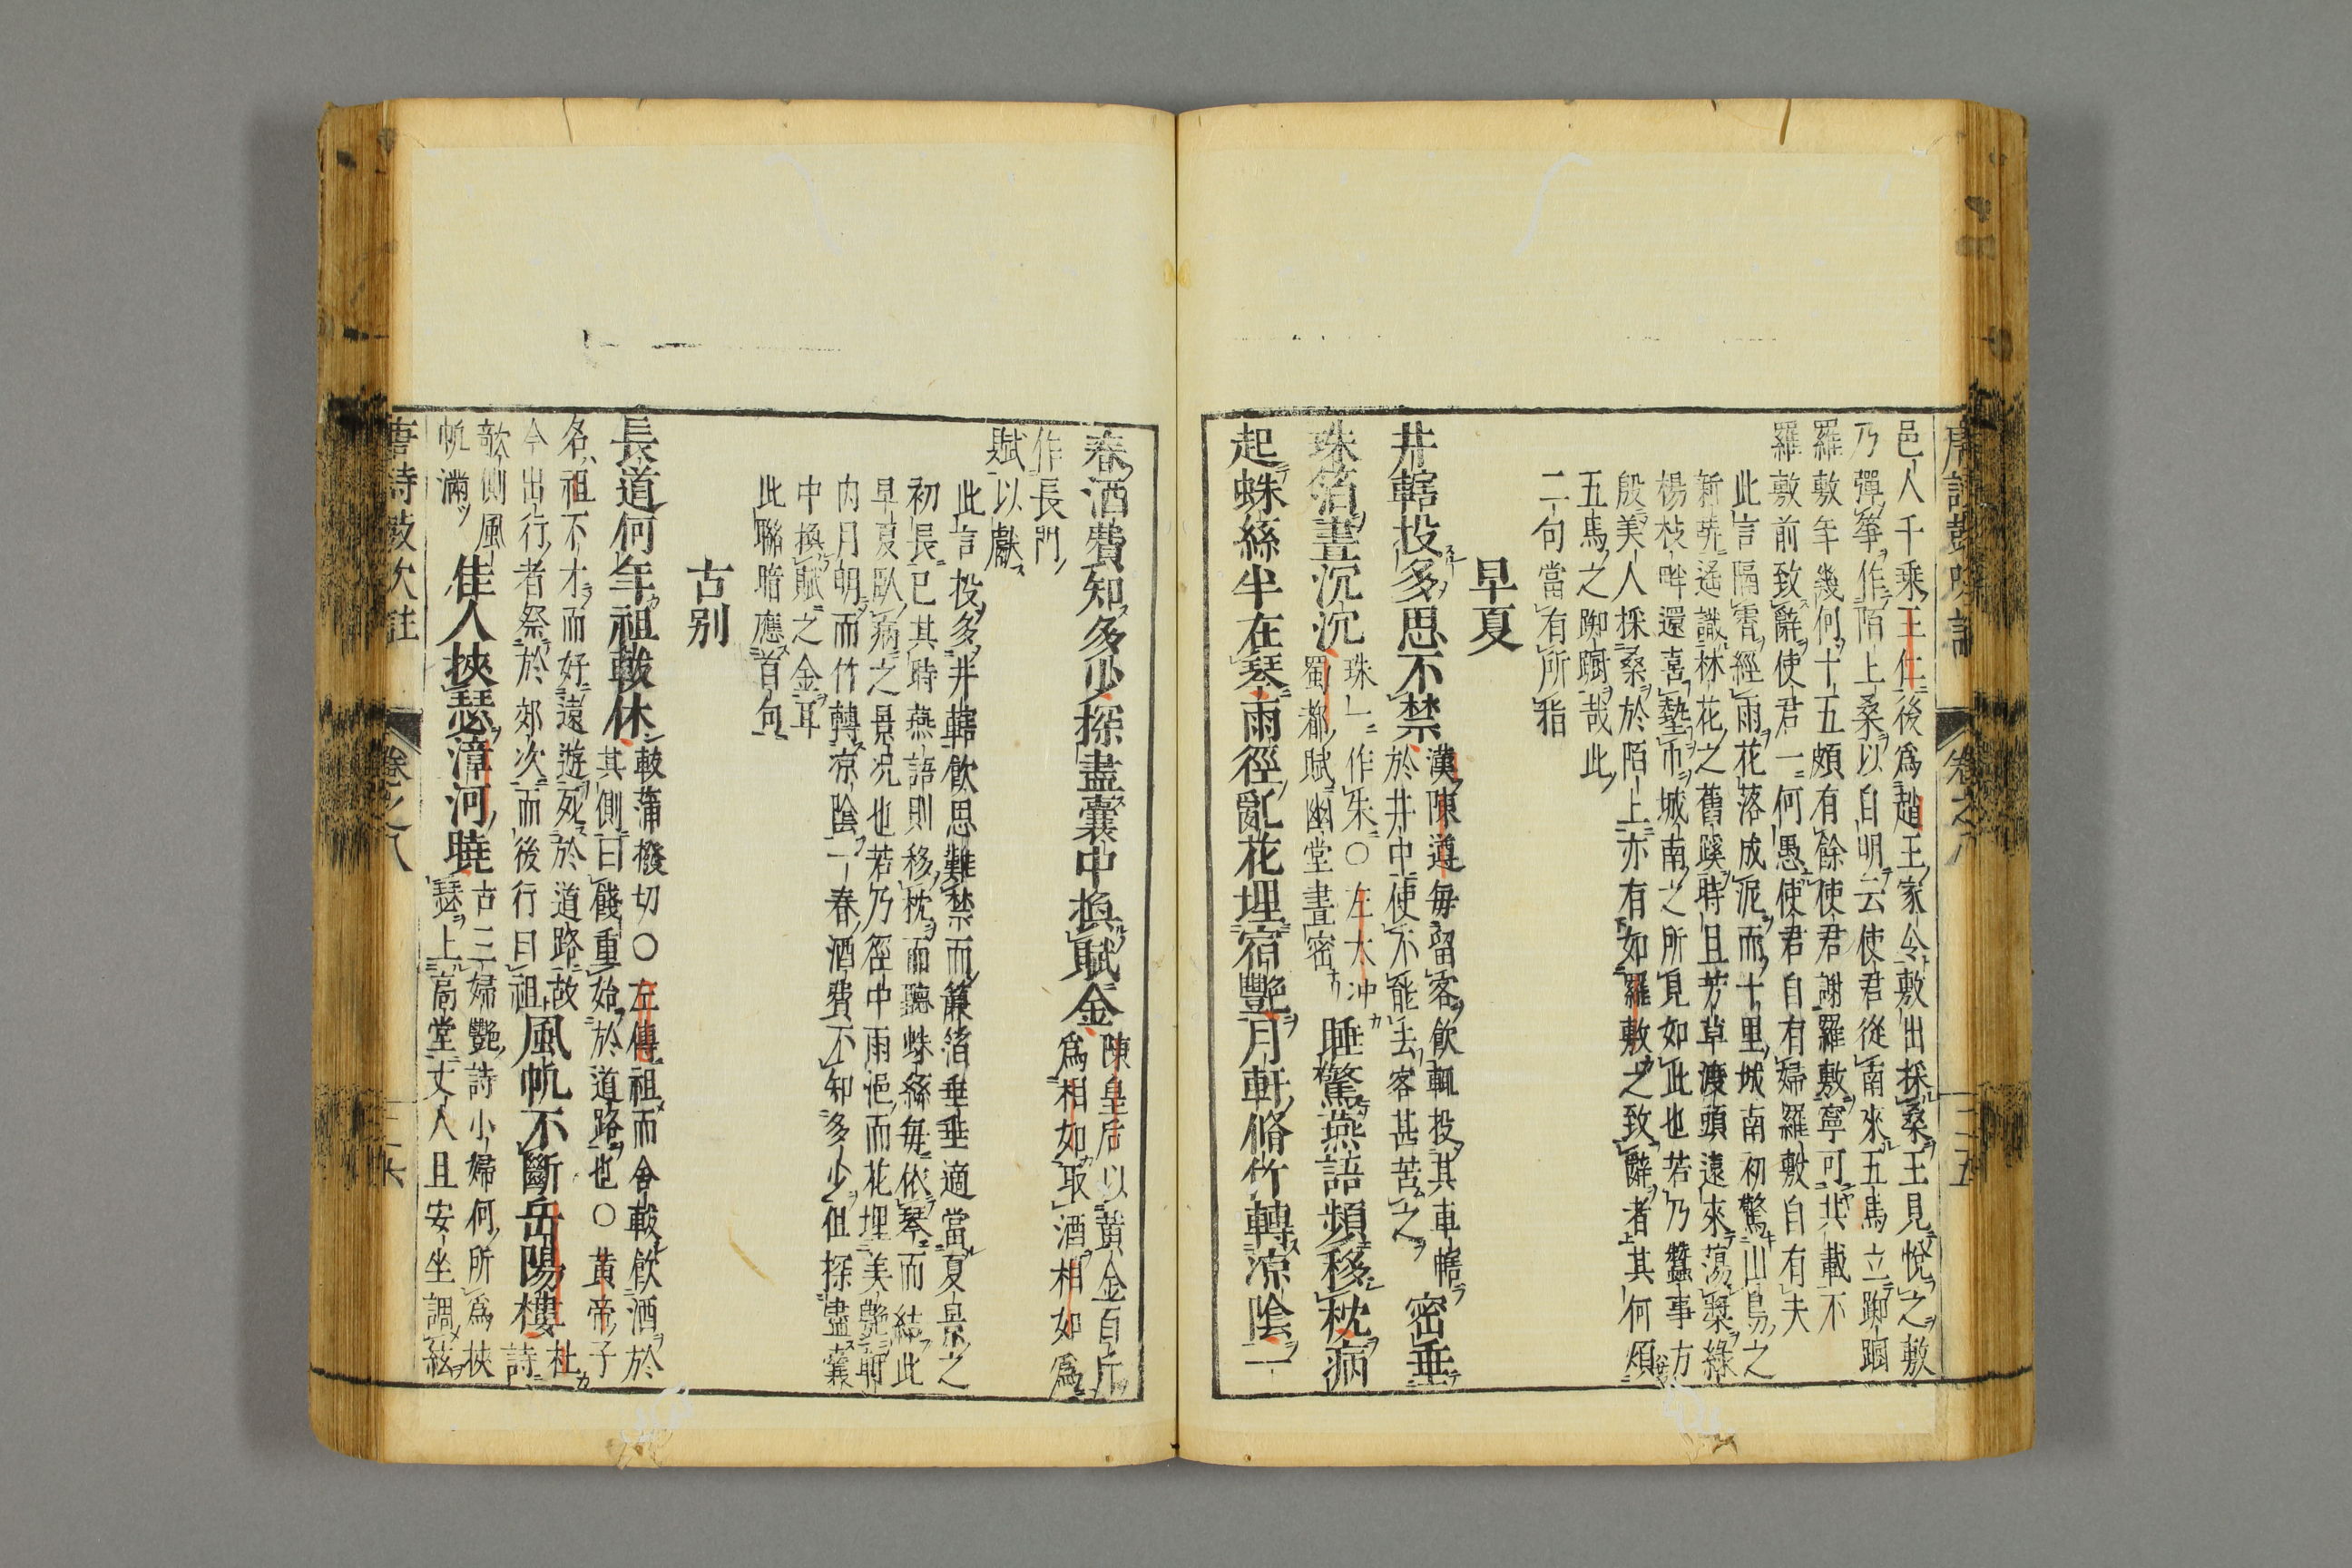 邑人千乘王仁後爲趙王家令敷出採桑王見悅之敷
乃彈箏作陌上桑以自明云使君從南來五馬立踟躕
羅敷年幾何十五頗有餘使君謝羅敷寧可共載不
羅敷前致辭使君一何愚使君自有婦羅敷自有夫
此言隔雲經雨花落成泥而十里城南初驚山鳥之
新哢遙識林花之舊蹊時且芳草渡頭遠來蕩槳綠
楊枝畔還喜墊巾城南之所見如此也若乃蠶事方
殷美人採桑於陌上亦有如羅敷之致辭者其何煩
五馬之踟躕哉此
二句當有所指
早夏
井轄投多思不禁
漢陳遵每留客飲輒投其車轄
於井中使不能去客甚苦之
密垂
珠箔晝沉沉
珠一作朱○左太冲
蜀都賦幽堂晝密
睡驚燕語頻移枕病
起蛛絲半在琴雨徑亂花埋宿艷月軒脩竹轉涼陰一
唐詩鼓吹註
卷之八
三五
春酒費知多少探盡囊中換賦金
陳皇后以黃金百斤
爲相如取酒相如爲
作長門
賦以獻
此言投多井轄飲思難禁而簾箔垂垂適當夏景之
初長已其時燕語則移枕而聽蛛絲每依琴而結此
早夏臥病之景况也若乃徑中雨浥而花埋美艷軒
内月明而竹轉凉陰一春酒費不知多少但探盡囊
中換賦之金耳
此聯暗應首句
古别
長道何年祖軷休
軷蒲撥切○左傳祖而舍軷飲酒於
其側曰餞重始於道路也○黃帝子
名祖不才而好遠遊死於道路故
今出行者祭於郊次而後行曰祖
風帆不斷岳陽樓
杜
詩
欹側風
帆滿
佳人挾瑟漳河曉
古三婦艷詩小婦何所爲挾
瑟上高堂丈人且安坐調絃
唐詩鼓吹註
卷之八
三六